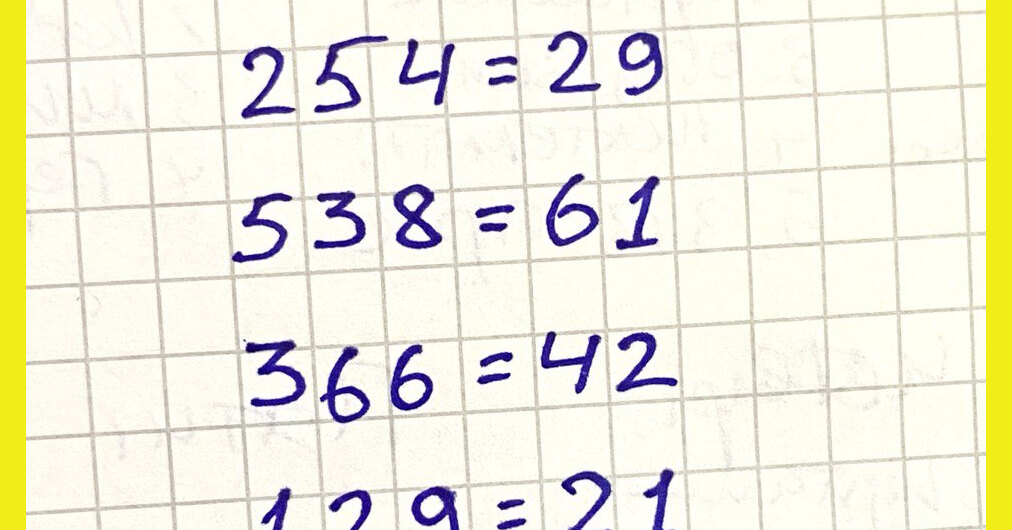 254=29
538=61
366=42
129=21